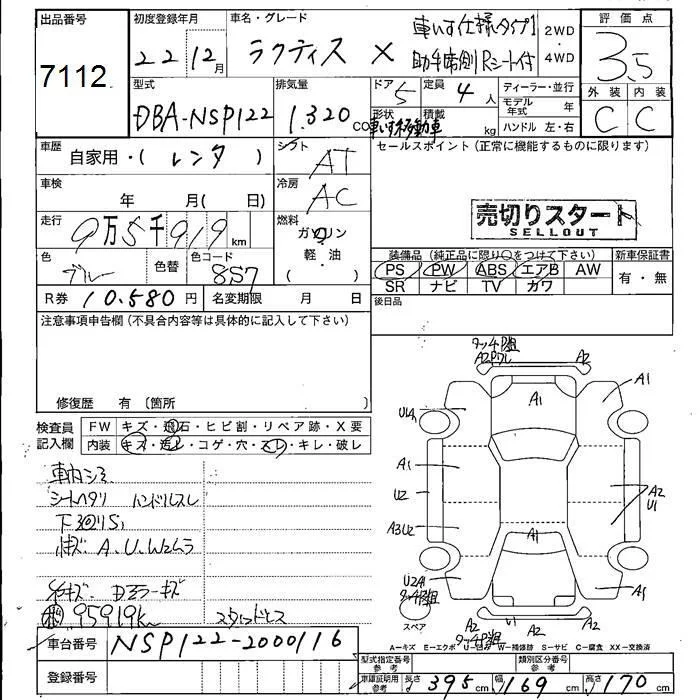 出品番号
7112
初度登録年月
22 12月
車名・グレード
ラクティス X
車いす仕様タイプ1
助手席側Rシート付
2WD
・
4WD
評価点
3.5
外装 内装
C C
型式
DBA-NSP122
排気量
1.320 CC
ドア 5
定員 4人
形状
車いす移動車
積載
kg
ディーラー・並行
モデル年式 年
ハンドル 左・右
車歴
自家用・(レンタ)
シフト
AT
セールスポイント(正常に機能するものに限ります)
車検
年 月(日)
冷房
AC
走行
9万5千919km
燃料
ガソリン
軽・油
・( )
売切りスタート
SELLOUT
色
ブルー
色替
色コード
8S7
装備品(純正品に限り○をつけて下さい)
PS PW ABS エアB AW
SR ナビ TV カワ
新車保証書
有・無
R券 10.580円
名変期限 月 日
後日品
注意事項申告欄(不具合内容等は具体的に記入して下さい)
修復歴 有〔箇所
検査員
記入欄
FW キズ・飛石・ヒビ割・リペア跡・X要
内装 キズ・汚レ・コゲ・穴・スレ・キレ・破レ
車内シミ
シートヘタリ ハンドルスレ
下回りS1
A.U.W2ムラ
Dミラーキズ
95919km
スタッドレス
タッチP組
A2 A2
A1 A1
A1
U2
A3U2
A2
U1
A1
U2A1
タッチP組
A1
スペア
A2 U1 A2
タッチP組 A2
A-キズ E-エクボ U-凹み W-補修跡 S-サビ C-腐食 XX-交換済
車台番号 NSP122-2000116
登録番号
型式指定番号
参考
類別区分番号
参考
車庫証明用
参考
長さ 395cm 幅 169cm 高さ 170cm